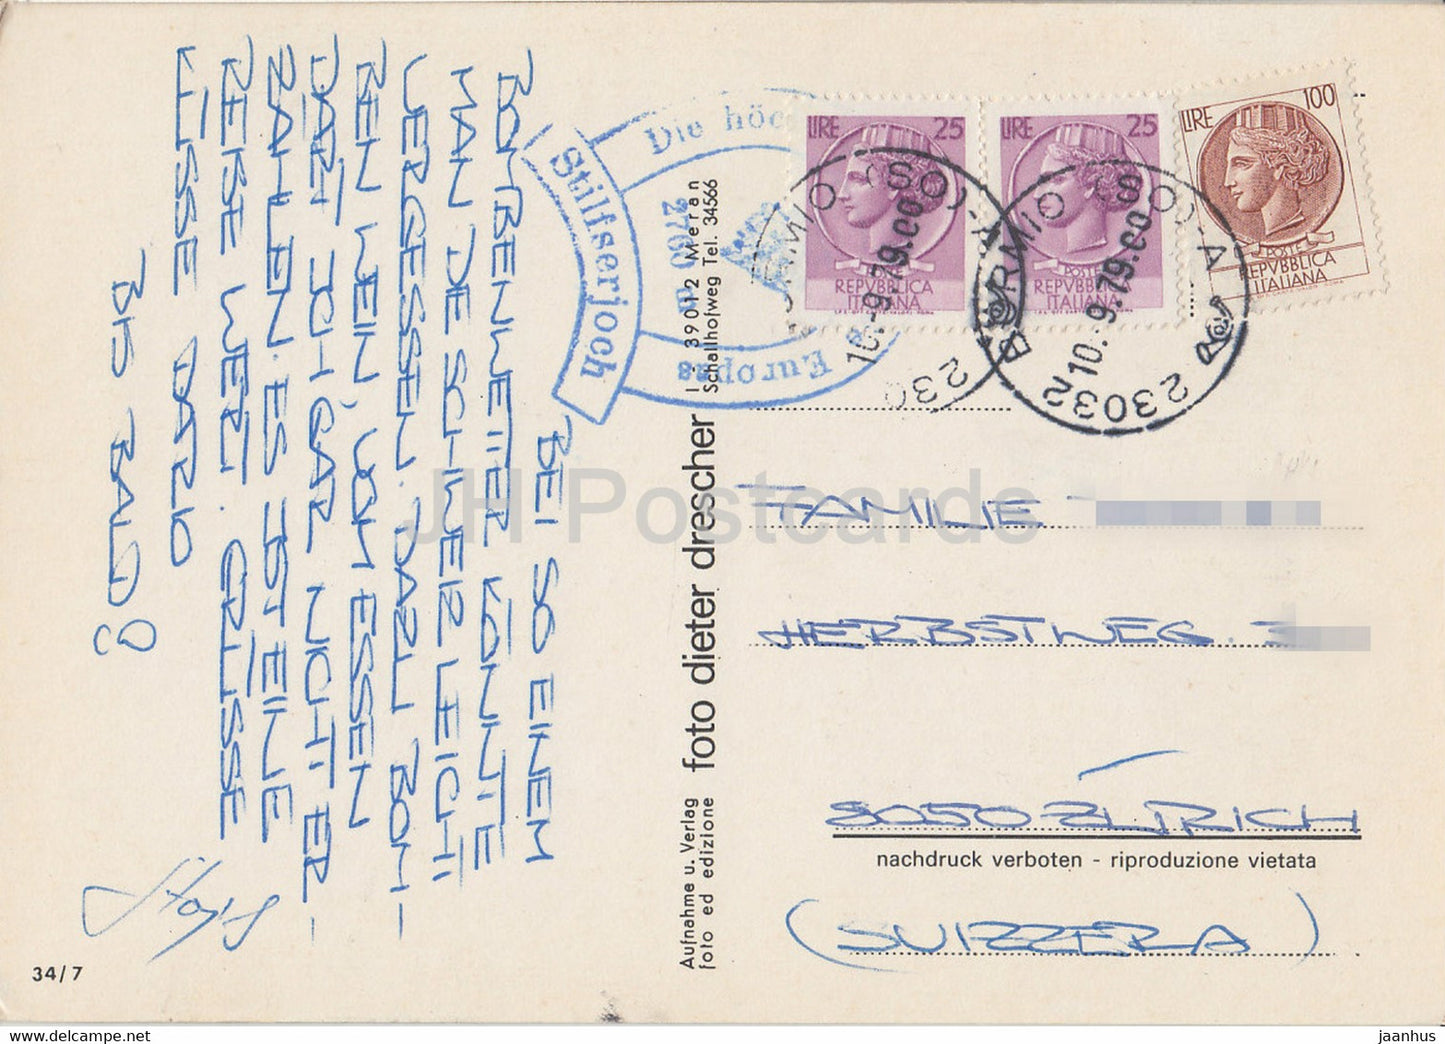 BEI SO EINEM
BOMBENWETTER KÖNNTE
MAN DE SCHWEIZ LEICHT
VERGESSEN. DAZU BOM-
BEN WEIN, VOM ESSEN
DARF ICH GAR NICHT ER-
ZÄHLEN. ES IST EINE
REISE WERT. GRÜSSE
KÜSSE DARIO
BIS BALD
34/7
Aufnahme u. Verlag
foto ed edizione
foto dieter drescher
I - 39012 Meran
Schallhofweg Tel. 34566
Die höc
Stilfserjoch
2760 m
Europas
LIRE 25
POSTE
REPVBBLICA
ITALIANA
LIRE 25
POSTE
REPVBBLICA
ITALIANA
LIRE 100
POSTE
REPVBBLICA
ITALIANA
RMIO (SO) - A
10.-9.79.00
230
BORMIO (SO) - A
10.-9.79.00
23032
FAMILIE
HERBSTWEG. 3
8050 ZÜRICH
nachdruck verboten - riproduzione vietata
(SVIZZERA)
JH Postcards
jaanhus